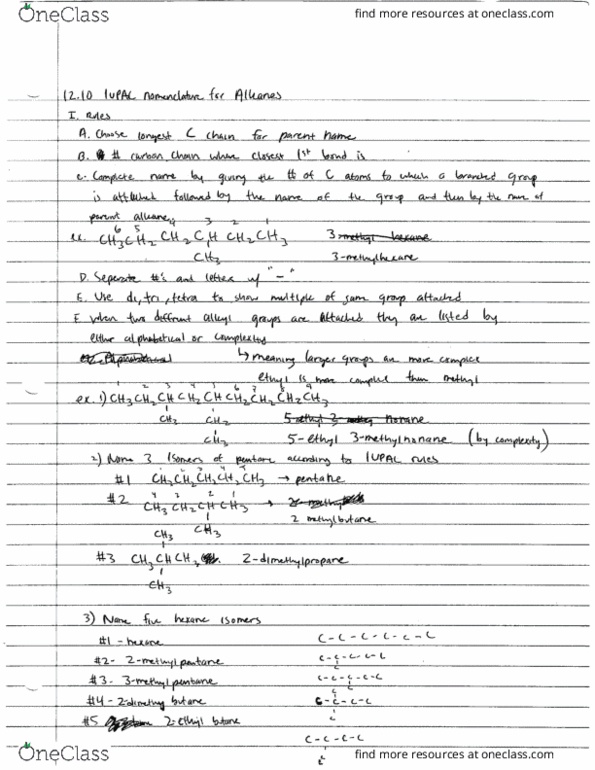 OneClass
find more resources at oneclass.com
12.10 IUPAC nomenclature for Alkanes
I. Rules
A. Choose longest C chain for parent name
B. # carbon chain where closest 1st bond is
C. Complete name by giving the # of C atoms to which a branched group
is attached followed by the name of the group and then by the name of
parent alkane
6 5 4 3 2 1
ex. CH3CH2CH2CHCH2CH3 3-methyl hexane
CH3 3-methylhexane
D. Seperate #'s and letters w/ "-"
E. Use di, tri, tetra to show multiple of same group attached
F. when two different alkyl groups are attached they are listed by
either alphabetical or complexity
↳ meaning larger groups are more complex
ethyl is more complex then methyl
1 2 3 4 5 6 7 8 9
ex. 1) CH3CH2CHCH2CHCH2CH2CH2CH3
CH3 CH2 nonane
CH3 5-ethyl 3-methylnonane (by complexity)
2) Name 3 Isomers of pentane according to IUPAC rules
#1 CH3CH2CH2CH2CH3 → pentane
#2 CH3CH2CHCH3 →
CH3 2 methylbutane
CH3
#3 CH3CHCH2 2-dimethylpropane
CH3
3) Name five hexane isomers
#1 - hexane C-C-C-C-C-C
#2- 2-methylpentane C-C-C-C-C
C
#3- 3-methylpentane C-C-C-C-C
C
C
#4-2-dimethy butane C-C-C-C
C
#5 2-ethyl butane
C-C-C-C
C
OneClass
find more resources at oneclass.com